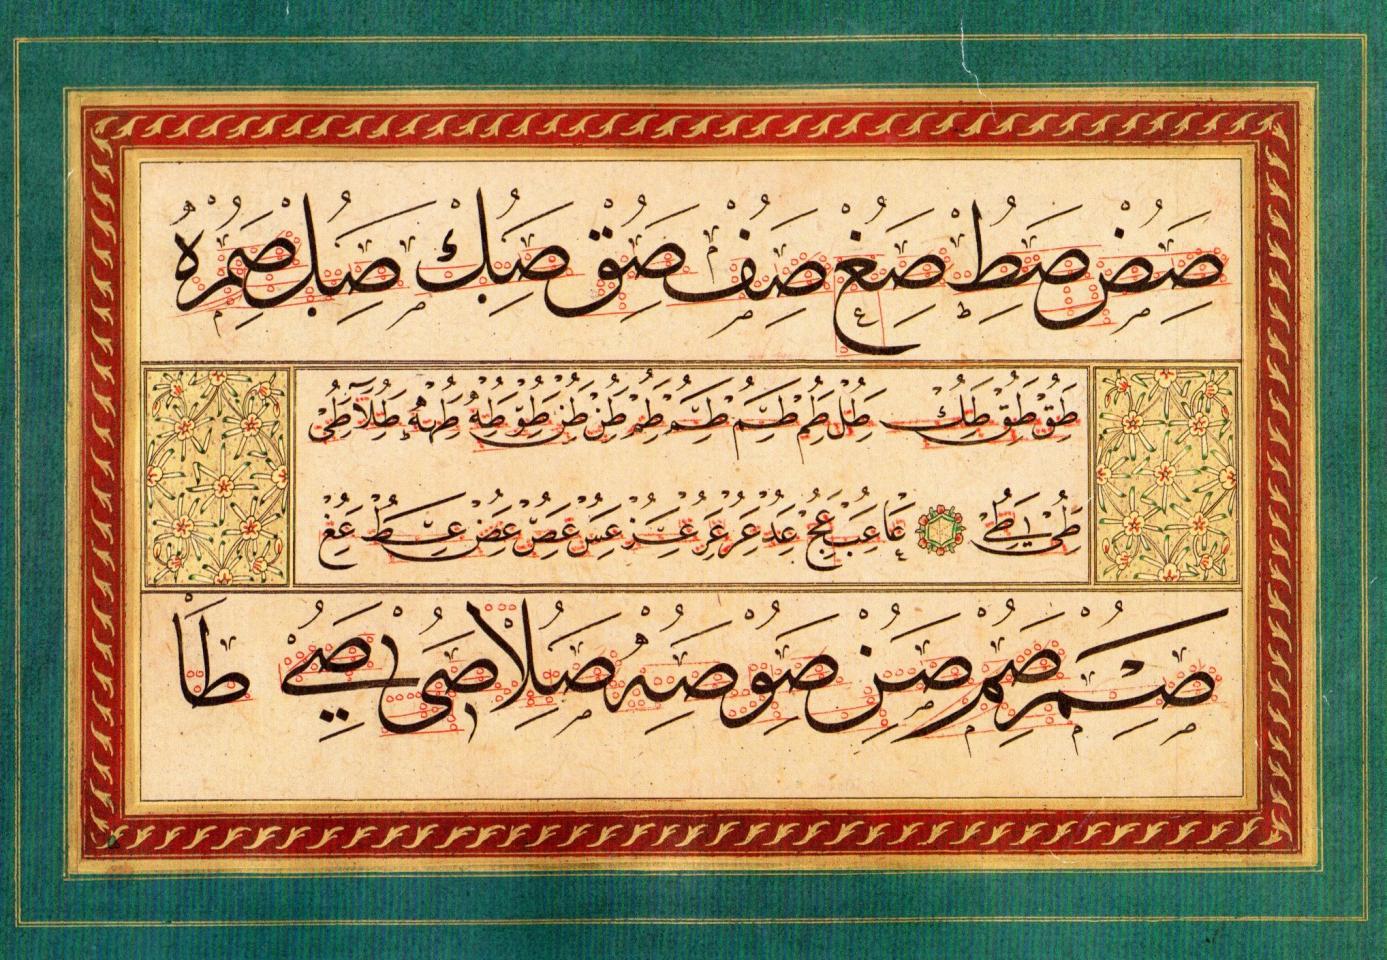 صض صط صغ صف صق
طق طق طك طل طم طم طم طم طن طن طو طه طه طلا طى
طى طى عا عب عج عد عر عر عز عس عص عض عط عغ
صم صم صن صو صه صلا صى صى طا